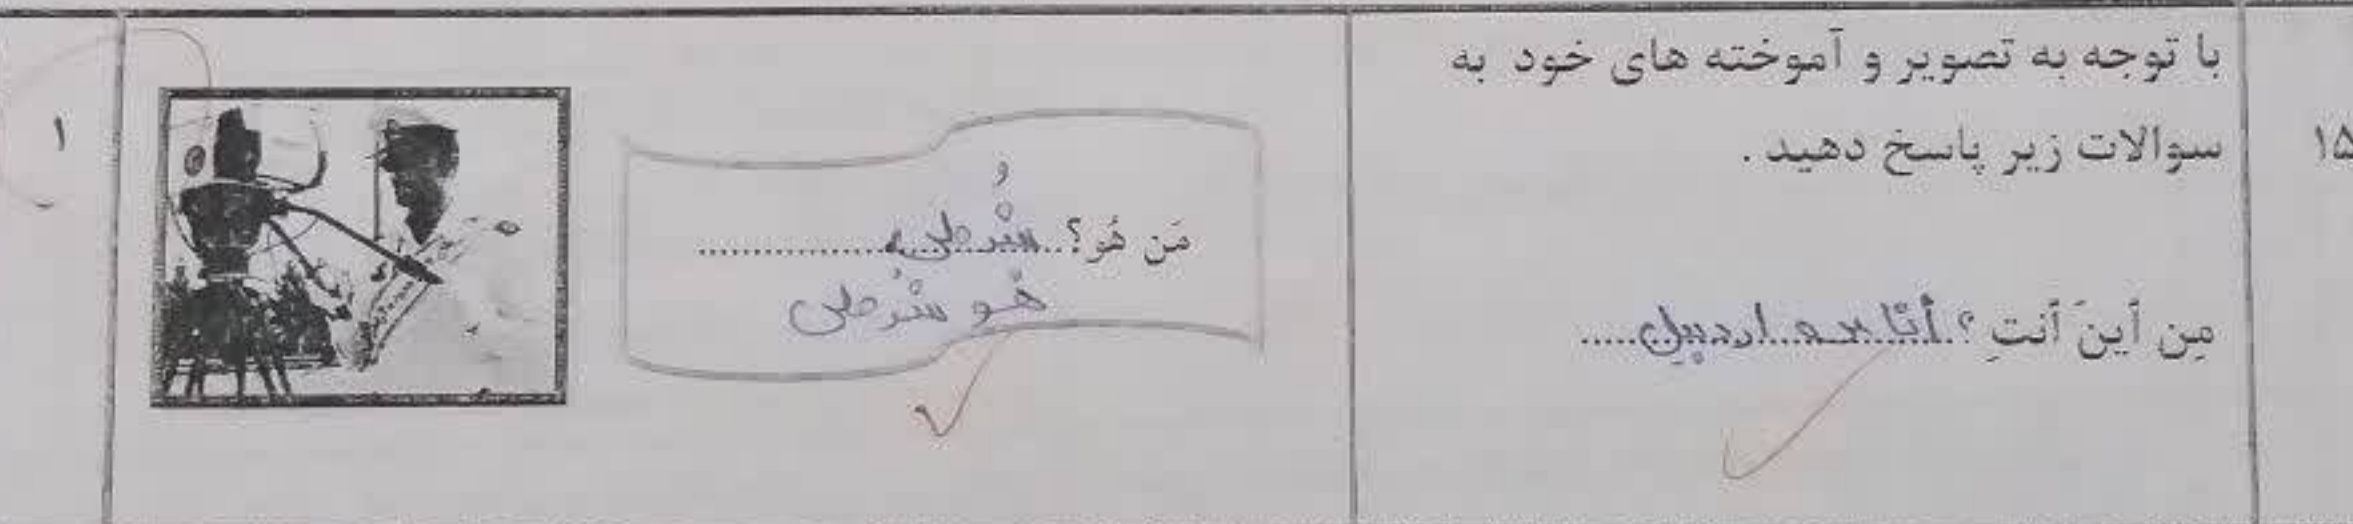 ۱۵
با توجه به تصویر و آموخته های خود به
سوالات زیر پاسخ دهید .
مِن أینَ أنتِ ؟ أنَا ..... اردبیل .....
مَن هُو؟ ... شُرطی ...
هُو شُرطی
۱